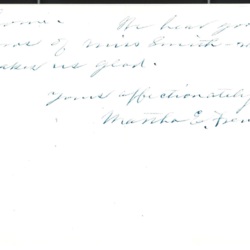 We hear good
of Miss Smith
us glad.
Yours affectionately
Martha E.